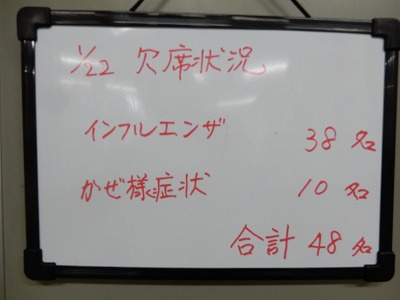 1/22 欠席状況
インフルエンザ 38名
かぜ様症状 10名
合計 48名